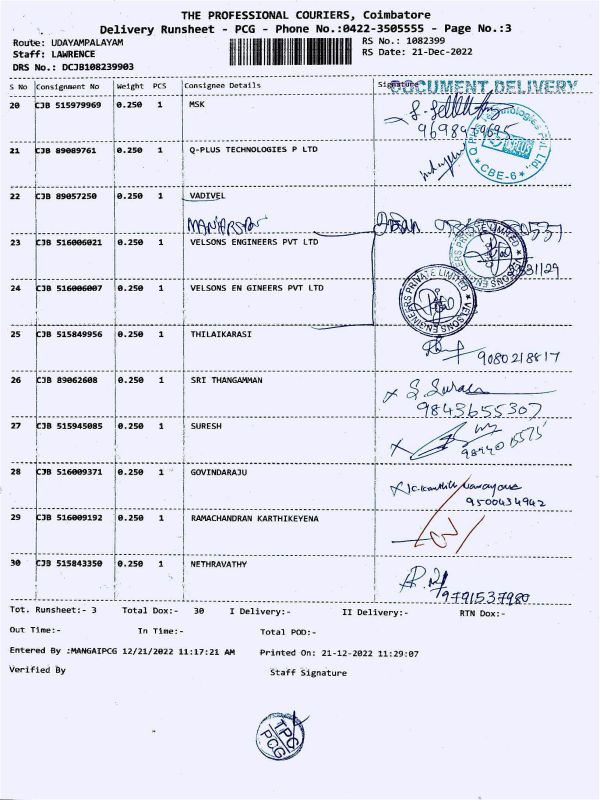 THE PROFESSIONAL COURIERS, Coimbatore
Delivery Runsheet - PCG - Phone No.:0422-3505555 - Page No.:3
Route: UDAYAMPALAYAM RS No.: 1082399
Staff: LAWRENCE RS Date: 21-Dec-2022
DRS No.: DCJB108239903
S No Consignment No Weight PCS Consignee Details Signature
DOCUMENT DELIVERY
20 CJB 515979969 0.250 1 MSK
21 CJB 89089761 0.250 1 Q-PLUS TECHNOLOGIES P LTD
CBE-6
22 CJB 89057250 0.250 1 VADIVEL
23 CJB 516006021 0.250 1 VELSONS ENGINEERS PVT LTD
VELSONS ENGINEERS PRIVATE LIMITED
24 CJB 516006007 0.250 1 VELSONS EN GINEERS PVT LTD
VELSONS ENGINEERS PRIVATE LIMITED
25 CJB 515849956 0.250 1 THILAIKARASI
9080218817
26 CJB 89062608 0.250 1 SRI THANGAMMAN
9843655307
27 CJB 515945085 0.250 1 SURESH
28 CJB 516009371 0.250 1 GOVINDARAJU
9500434942
29 CJB 516009192 0.250 1 RAMACHANDRAN KARTHIKEYENA
30 CJB 515843350 0.250 1 NETHRAVATHY
9791537980
Tot. Runsheet:- 3 Total Dox:- 30 I Delivery:- II Delivery:- RTN Dox:-
Out Time:- In Time:- Total POD:-
Entered By :MANGAIPCG 12/21/2022 11:17:21 AM Printed On: 21-12-2022 11:29:07
Verified By Staff Signature
TPC
PCG